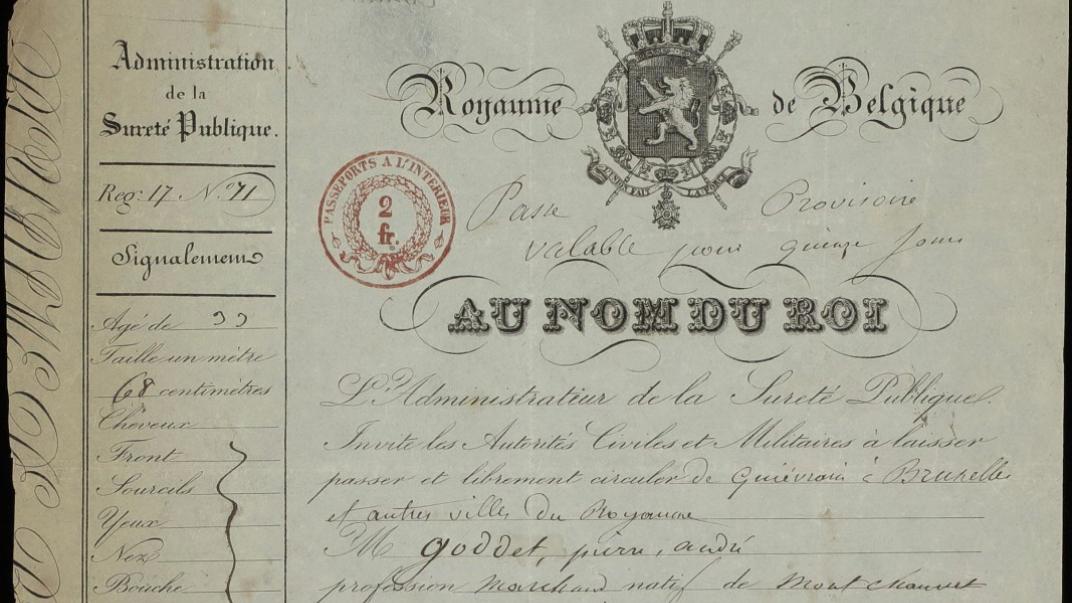 Administration
de la
Sureté Publique.
Reg: 17 N.º 71
Signalement
Agé de 33
Taille un mètre
68 centimètres
Cheveux
Front
Sourcils
Yeux
Nez
Bouche
Royaume de Belgique
L'UNION FAIT LA FORCE
PASSEPORTS A L'INTÉRIEUR
2
fr.
Passe Provisoire
valable pour quinze jours
AU NOM DU ROI
L'Administrateur de la Sureté Publique.
Invite les Autorités Civiles et Militaires à laisser
passer et librement circuler de Quiévrain à Bruxelles
et autres villes du Royaume
M goddet, pierre, andré
profession marchand natif de Mont chauvet